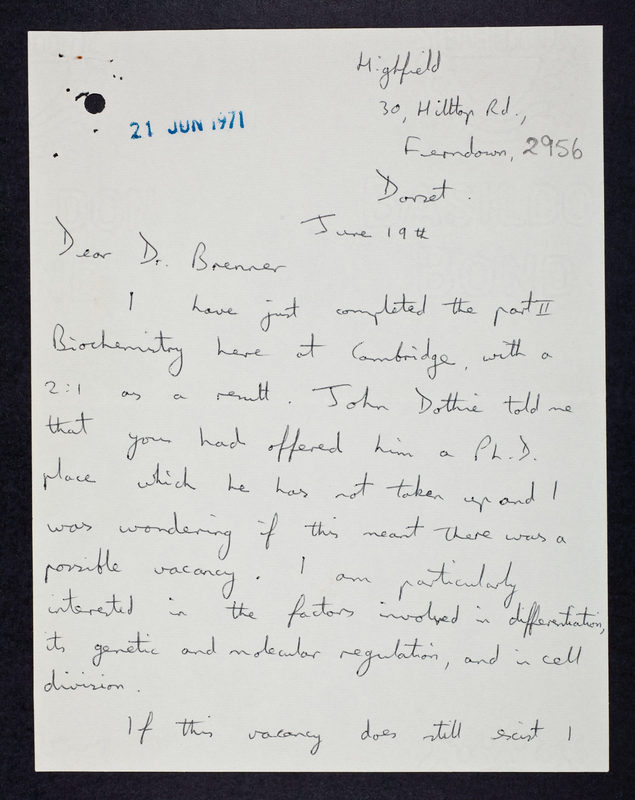 Highfield
30, Hilltop Rd.,
21 JUN 1971
Ferndown, 2956
Dorset.
June 19th
Dear Dr. Brenner
I have just completed the part II
Biochemistry here at Cambridge, with a
2:1 as a result. John Dothie told me
that you had offered him a Ph.D.
place which he has not taken up and I
was wondering if this meant there was a
possible vacancy. I am particularly
interested in the factors involved in differentiation,
its genetic and molecular regulation, and in cell
division.
If this vacancy does still exist I